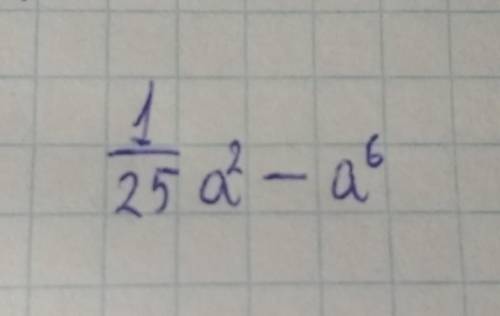 1/25 a² − a⁶